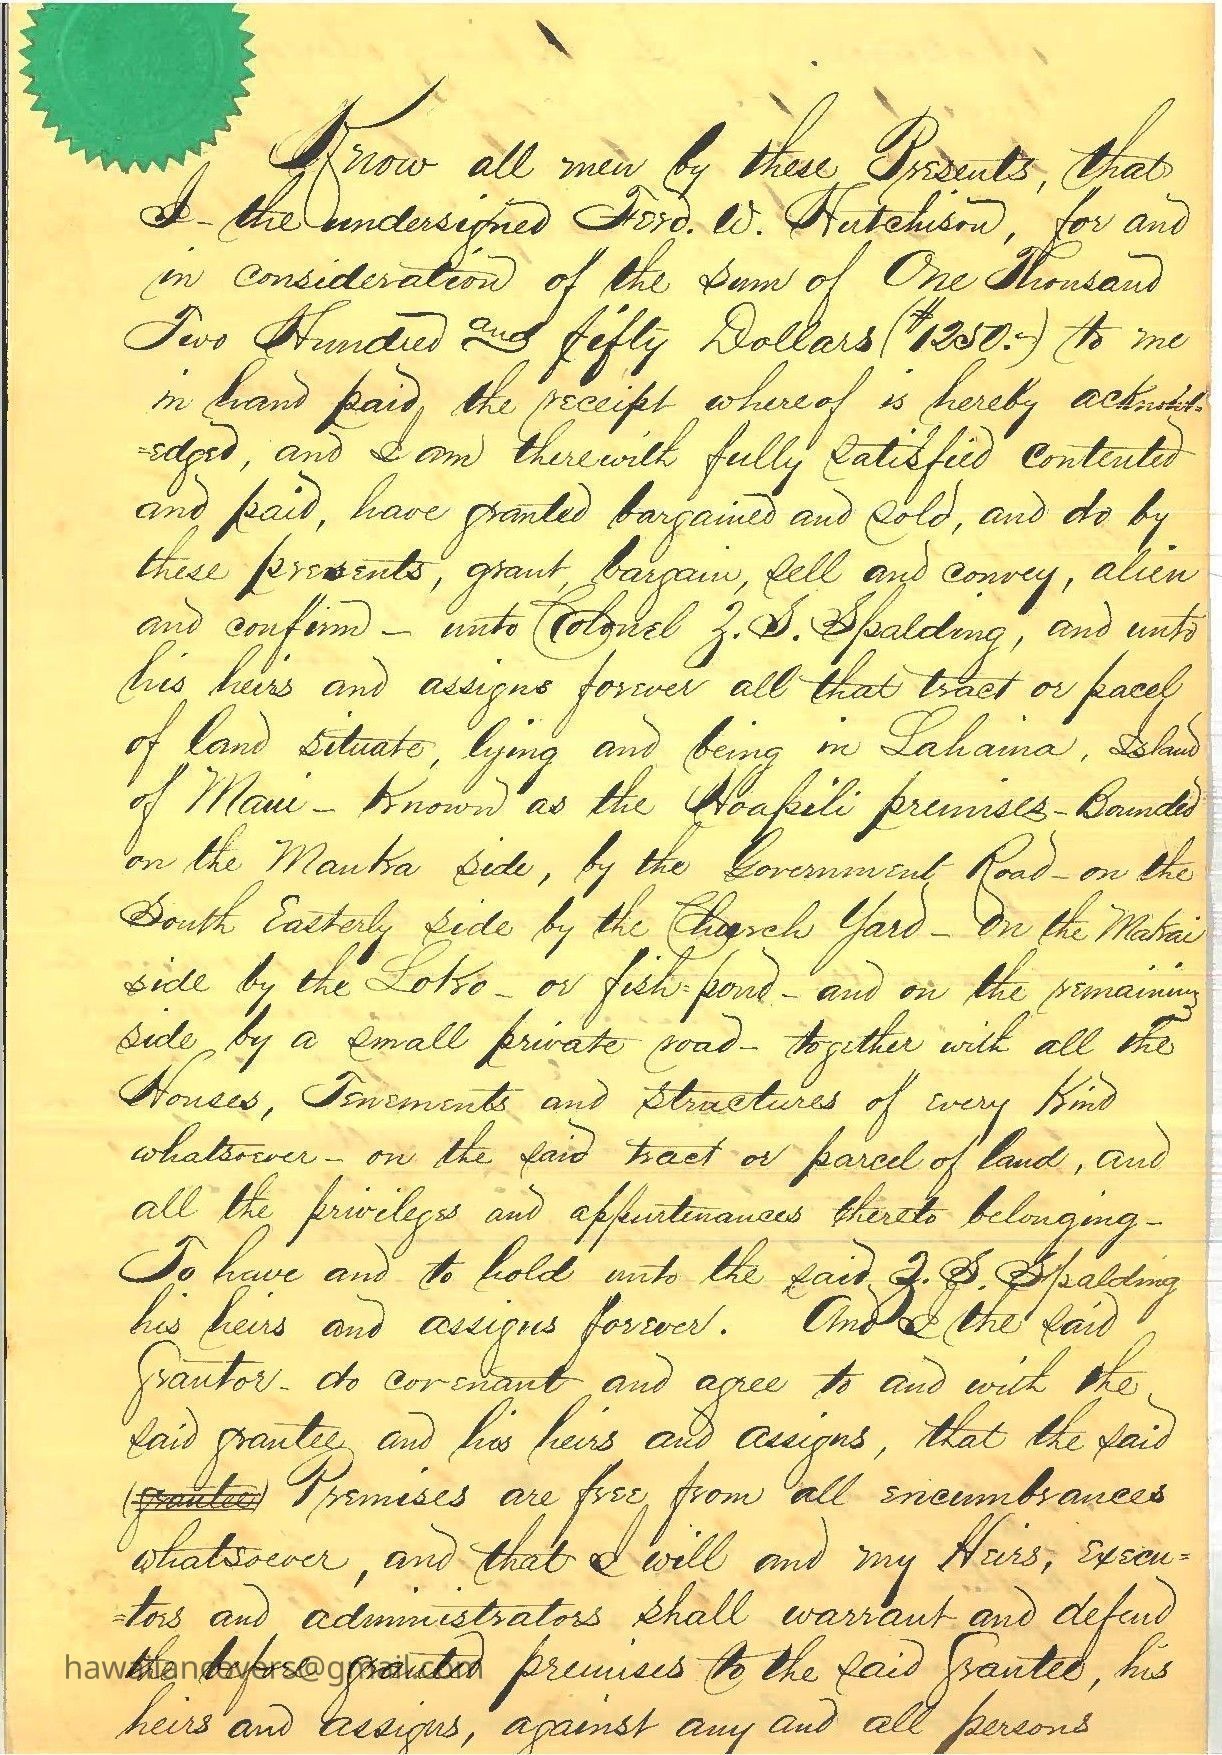 Know all men by these Presents, that
I - the undersigned Ferd. W. Hutchison, for and
in consideration of the sum of One Thousand
Two Hundred and fifty Dollars ($1250.-) to me
in hand paid, the receipt whereof is hereby acknowl-
=edged, and I am therewith fully satisfied contented
and paid, have granted bargained and sold, and do by
these presents, grant, bargain, sell and convey, alien
and confirm - unto Colonel Z. S. Spalding, and unto
his heirs and assigns forever all that tract or pacel
of land situate, lying and being in Lahaina, Island
of Maui - Known as the Hoapili premises - Bounded
on the Mauka side, by the Government Road - on the
South Easterly side by the Church Yard - On the Makai
side by the Loko - or fish=pond - and on the remaining
side by a small private road - together with all the
Houses, Tenements and structures of every Kind
whatsoever - on the said tract or parcel of land, and
all the privileges and appurtenances thereto belonging -
To have and to hold unto the said Z. S. Spalding
his heirs and assigns forever. And I the said
Grantor - do covenant and agree to and with the
said grantee and his heirs and assigns, that the said
(grantee) Premises are free from all encumbrances
whatsoever, and that I will and my Heirs, Execu=
=tors and administrators shall warrant and defend
the before granted premises to the said Grantee, his
hawaiianevers@gmail.com
heirs and assigns, against any and all persons